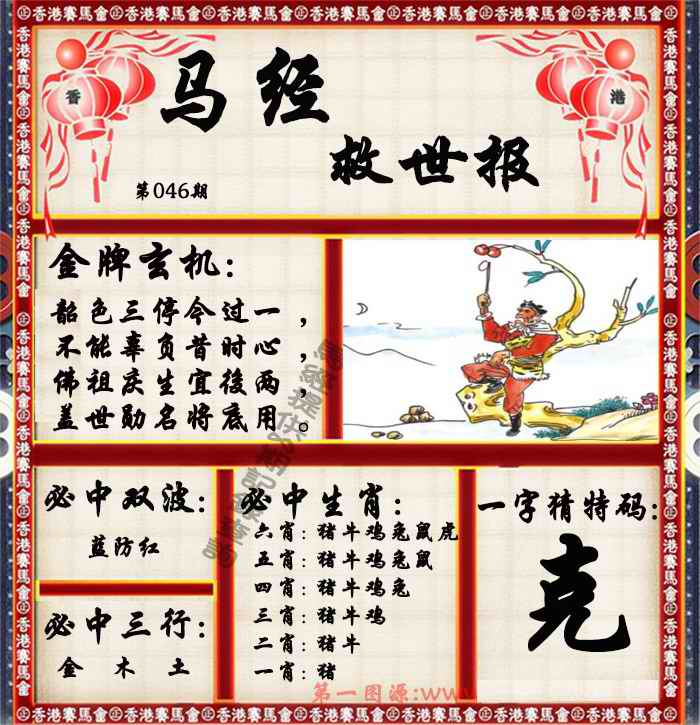 香港賽馬會
香
港
马经
救世报
第046期
金牌玄机:
韶色三停今过一,
不能辜负昔时心,
佛祖庆生宜後两,
盖世勋名将底用。
必中双波:
蓝防红
必中三行:
金 木 土
必中生肖:
六肖:猪牛鸡兔鼠虎
五肖:猪牛鸡兔鼠
四肖:猪牛鸡兔
三肖:猪牛鸡
二肖:猪牛
一肖:猪
一字猜特码:
克
第一图源:www